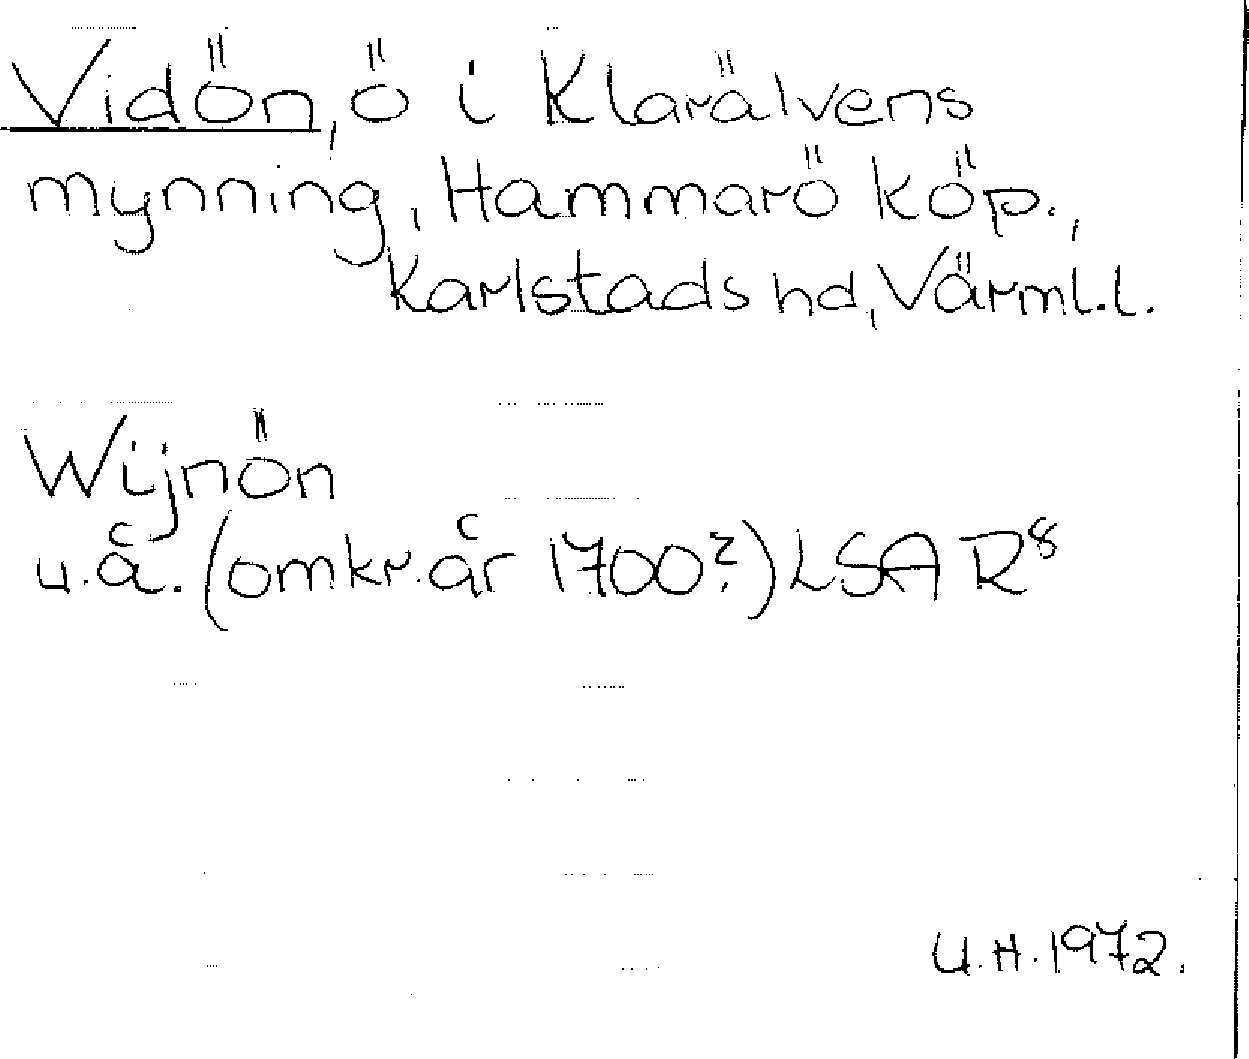 Vidön, ö i Klarälvens
mynning, Hammarö köp.,
Karlstads hd, Värml.l.
Wijnön
u.å. (omkr. år 1700?) LSA R⁸
U.H. 1972.